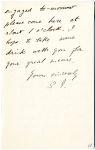 engaged to-morrow
please come here at
about 1 o'clock. I
hope to take some
drink with you for
your great
Yours sincerely
S.